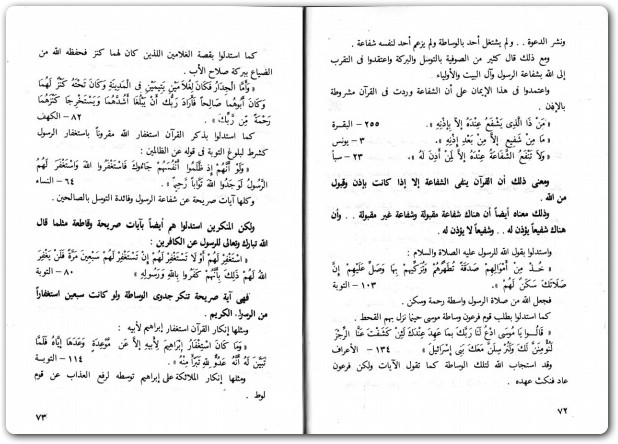 ونشر الدعوة . . ولم يشتغل أحد بالوساطة ولم يزعم أحد لنفسه شفاعة .
ومع ذلك قال كثير من الصوفية بالتوسل والبركة واعتقدوا فى التقرب
إلى الله بشفاعة الرسول وآل البيت والأولياء
واعتمدوا فى هذا الإيمان على أن الشفاعة وردت فى القرآن مشروطة
بالإذن .
« مَن ذَا الَّذِى يَشْفَعُ عِنْدَهُ إِلاَّ بِإِذْنِهِ » . ٢٥٥ - البقرة
« مَا مِنْ شَفِيعٍ إِلاَّ مِنْ بَعْدِ إِذْنِهِ » . ٣ - يونس
« وَلاَ تَنْفَعُ الشَّفَاعَةُ عِنْدَهُ إِلاَّ لِمَنْ أَذِنَ لَهُ » . ٢٣ - سبأ
ومعنى ذلك أن القرآن ينفى الشفاعة إلا إذا كانت بإذن وقبول
من الله .
وذلك معناه أيضاً أن هناك شفاعة مقبولة وشفاعة غير مقبولة . . وأن
هناك شفيعاً يؤذن له . . وشفيعاً لا يؤذن له .
واستدلوا بقول الله للرسول عليه الصلاة والسلام :
« خُذْ مِنْ أَمْوَالِهِمْ صَدَقَةً تُطَهِّرُهُمْ وَتُزَكِّيهِمْ بِهَا وَصَلِّ عَلَيْهِمْ إِنَّ
صَلاَتَكَ سَكَنٌ لَهُمْ » . ١٠٣ - التوبة
فجعل الله من صلاة الرسول واسطة رحمة وسكن .
كما استدلوا بطلب قوم فرعون وساطة موسى حينما نزل بهم القحط .
« قَالُوا يَا مُوسَى ادْعُ لَنَا رَبَّكَ بِمَا عَهِدَ عِنْدَكَ لَئِنْ كَشَفْتَ عَنَّا الرِّجْزَ
لَنُؤْمِنَنَّ لَكَ وَلَنُرْسِلَنَّ مَعَكَ بَنِى إِسْرَائِيلَ » . ١٣٤ - الأعراف
وقد استجاب الله لتلك الوساطة كما تقول الآيات ولكن فرعون
عاد فنكث عهده .
٧٢
كما استدلوا بقصة الغلامين اللذين كان لهما كنز فحفظه الله من
الضياع ببركة صلاح الأب .
« وَأَمَّا الْجِدَارُ فَكَانَ لِغُلاَمَيْنِ يَتِيمَيْنِ فِى الْمَدِينَةِ وَكَانَ تَحْتَهُ كَنْزٌ لَهُمَا
وَكَانَ أَبُوهُمَا صَالِحاً فَأَرَادَ رَبُّكَ أَنْ يَبْلُغَا أَشُدَّهُمَا وَيَسْتَخْرِجَا كَنْزَهُمَا
رَحْمَةً مِّن رَّبِّكَ » . ٨٢ - الكهف
كما استدلوا بذكر القرآن استغفار الله مقروناً باستغفار الرسول
كشرط لبلوغ التوبة فى قوله عن الظالمين :
« وَلَوْ أَنَّهُمْ إِذ ظَلَمُوا أَنْفُسَهُمْ جَاءُوكَ فَاسْتَغْفَرُوا اللهَ وَاسْتَغْفَرَ لَهُمُ
الرَّسُولُ لَوَجَدُوا اللهَ تَوَّاباً رَحِيماً » . ٦٤ - النساء
وكلها آيات صريحة عن شفاعة الرسول وفائدة التوسل بالصالحين .
ولكن المنكرين استدلوا هم أيضاً بآيات صريحة وقاطعة مثلما قال
الله تبارك وتعالى للرسول عن الكافرين :
« اسْتَغْفِرْ لَهُمْ أَوْ لاَ تَسْتَغْفِرْ لَهُمْ إِنْ تَسْتَغْفِرْ لَهُمْ سَبْعِينَ مَرَّةً فَلَنْ يَغْفِرَ
اللهُ لَهُمْ ذَلِكَ بِأَنَّهُمْ كَفَرُوا بِاللهِ وَرَسُولِهِ » ٨٠ - التوبة
فهى آية صريحة تنكر جدوى الوساطة ولو كانت سبعين استغفاراً
من الرسول الكريم .
ومثلها إنكار القرآن استغفار إبراهيم لأبيه :
« وَمَا كَانَ اسْتِغْفَارُ إِبْرَاهِيمَ لأَبِيهِ إِلاَّ عَن مَّوْعِدَةٍ وَعَدَهَا إِيَّاهُ فَلَمَّا
تَبَيَّنَ لَهُ أَنَّهُ عَدُوٌّ للهِ تَبَرَّأَ مِنْهُ » . ١١٤ - التوبة
ومثلها إنكار الملائكة على إبراهيم توسطه لرفع العذاب عن قوم
لوط .
٧٣